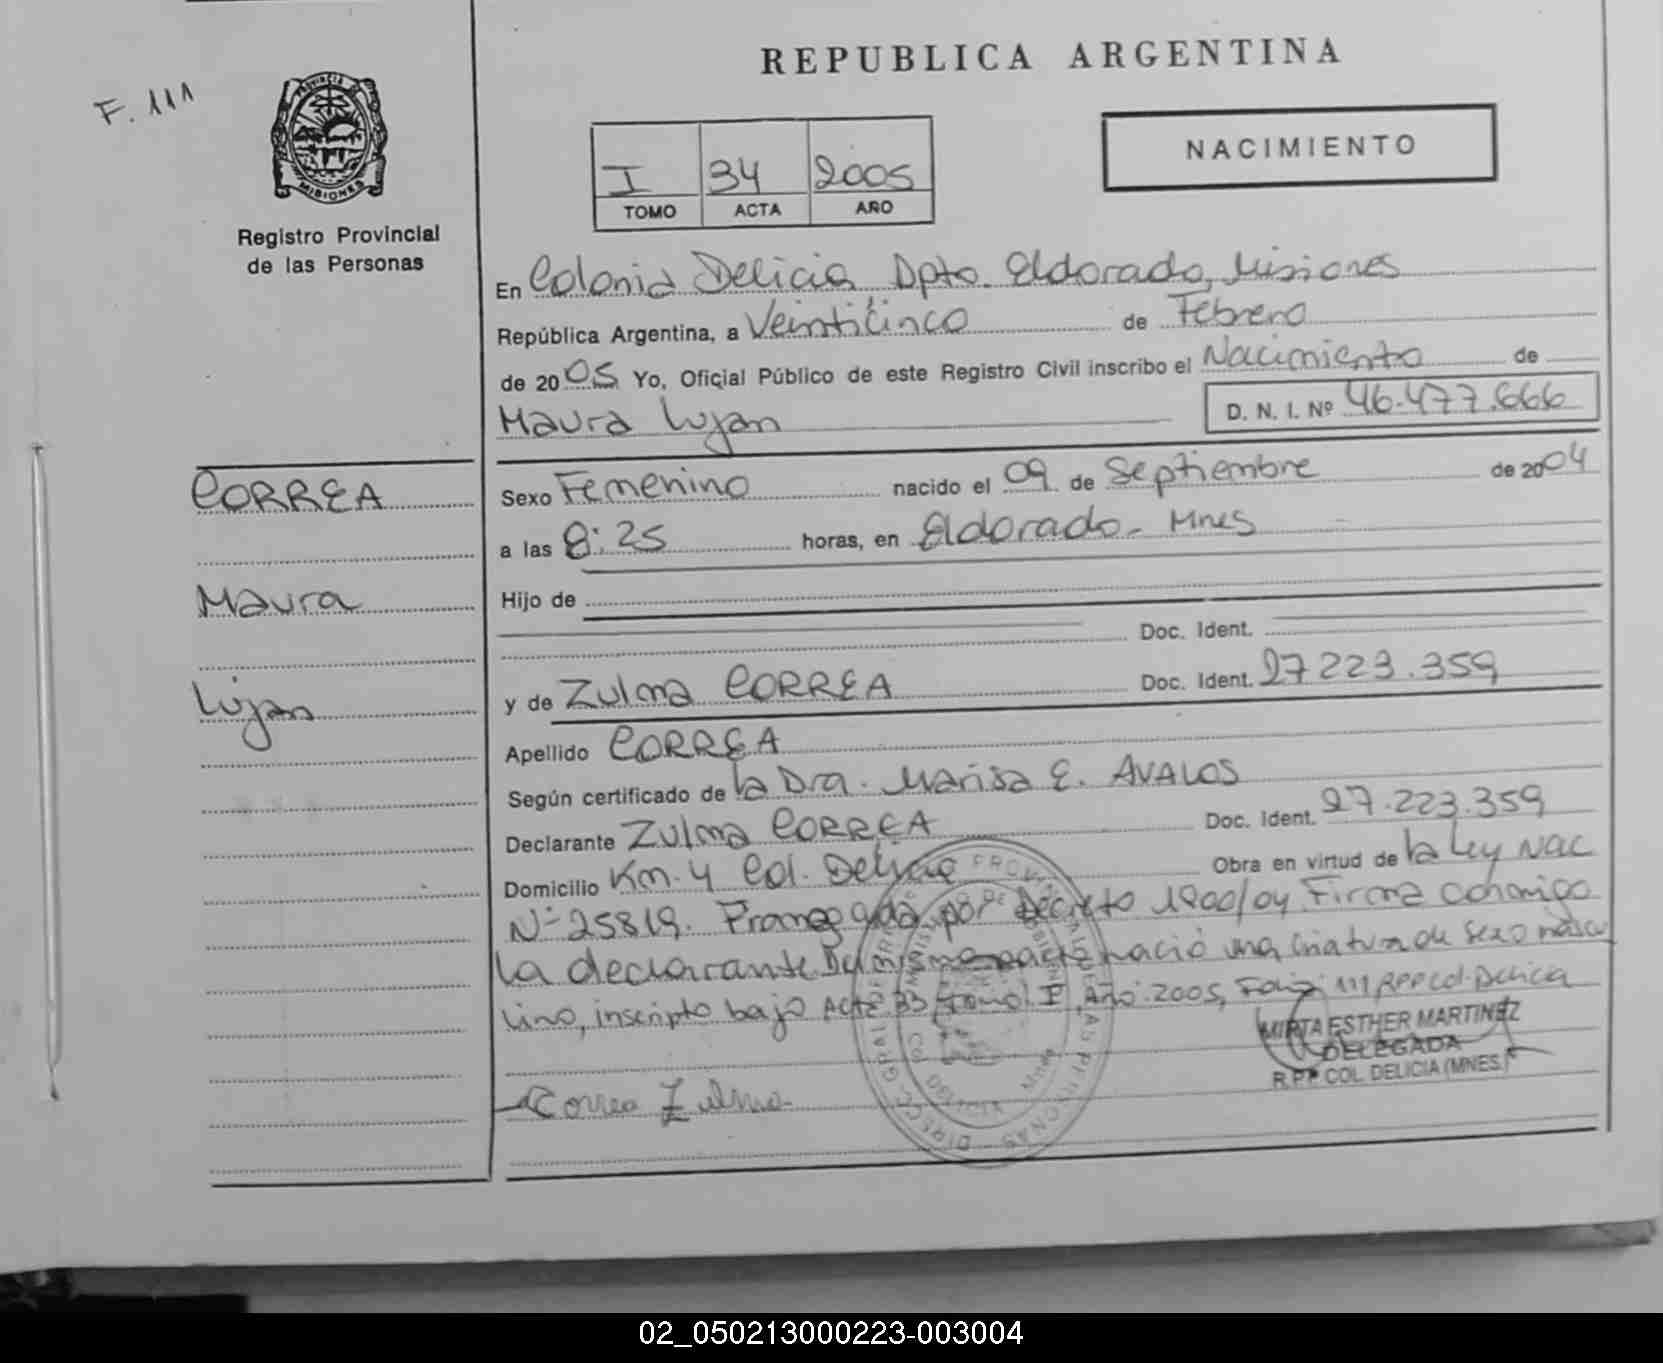 REPUBLICA ARGENTINA
F. 111
PROVINCIA DE
MISIONES
Registro Provincial
de las Personas
I 34 2005
TOMO ACTA AÑO
NACIMIENTO
En Colonia Delicia Dpto. Eldorado, Misiones
República Argentina, a Veinticinco de Febrero
de 2005 Yo, Oficial Público de este Registro Civil inscribo el Nacimiento de
Maura Lujan D. N. I. Nº 46.477.666
CORREA
Maura
Lujan
Sexo Femenino nacido el 09 de Septiembre de 2004
a las 8:25 horas, en Eldorado - Mnes
Hijo de
Doc. Ident.
y de Zulma CORREA Doc. Ident. 27 223.359
Apellido CORREA
Según certificado de la Dra. Marisa E. AVALOS
Declarante Zulma CORREA Doc. Ident. 27.223.359
Domicilio Km. 4 Col. Delicia Obra en virtud de la Ley Nac
Nº 25819. por Decreto 1900/04 Firma conmigo
la declarante. Del mismo parto nació una criatura de sexo mascu
lino, inscripto bajo Acta 33 tomo I, Año 2005, Folio 111 RPP Col. Delicia
MIRTA ESTHER MARTINEZ
DELEGADA
R.P.P. COL. DELICIA (MNES)
Correa Zulma
02_050213000223-003004